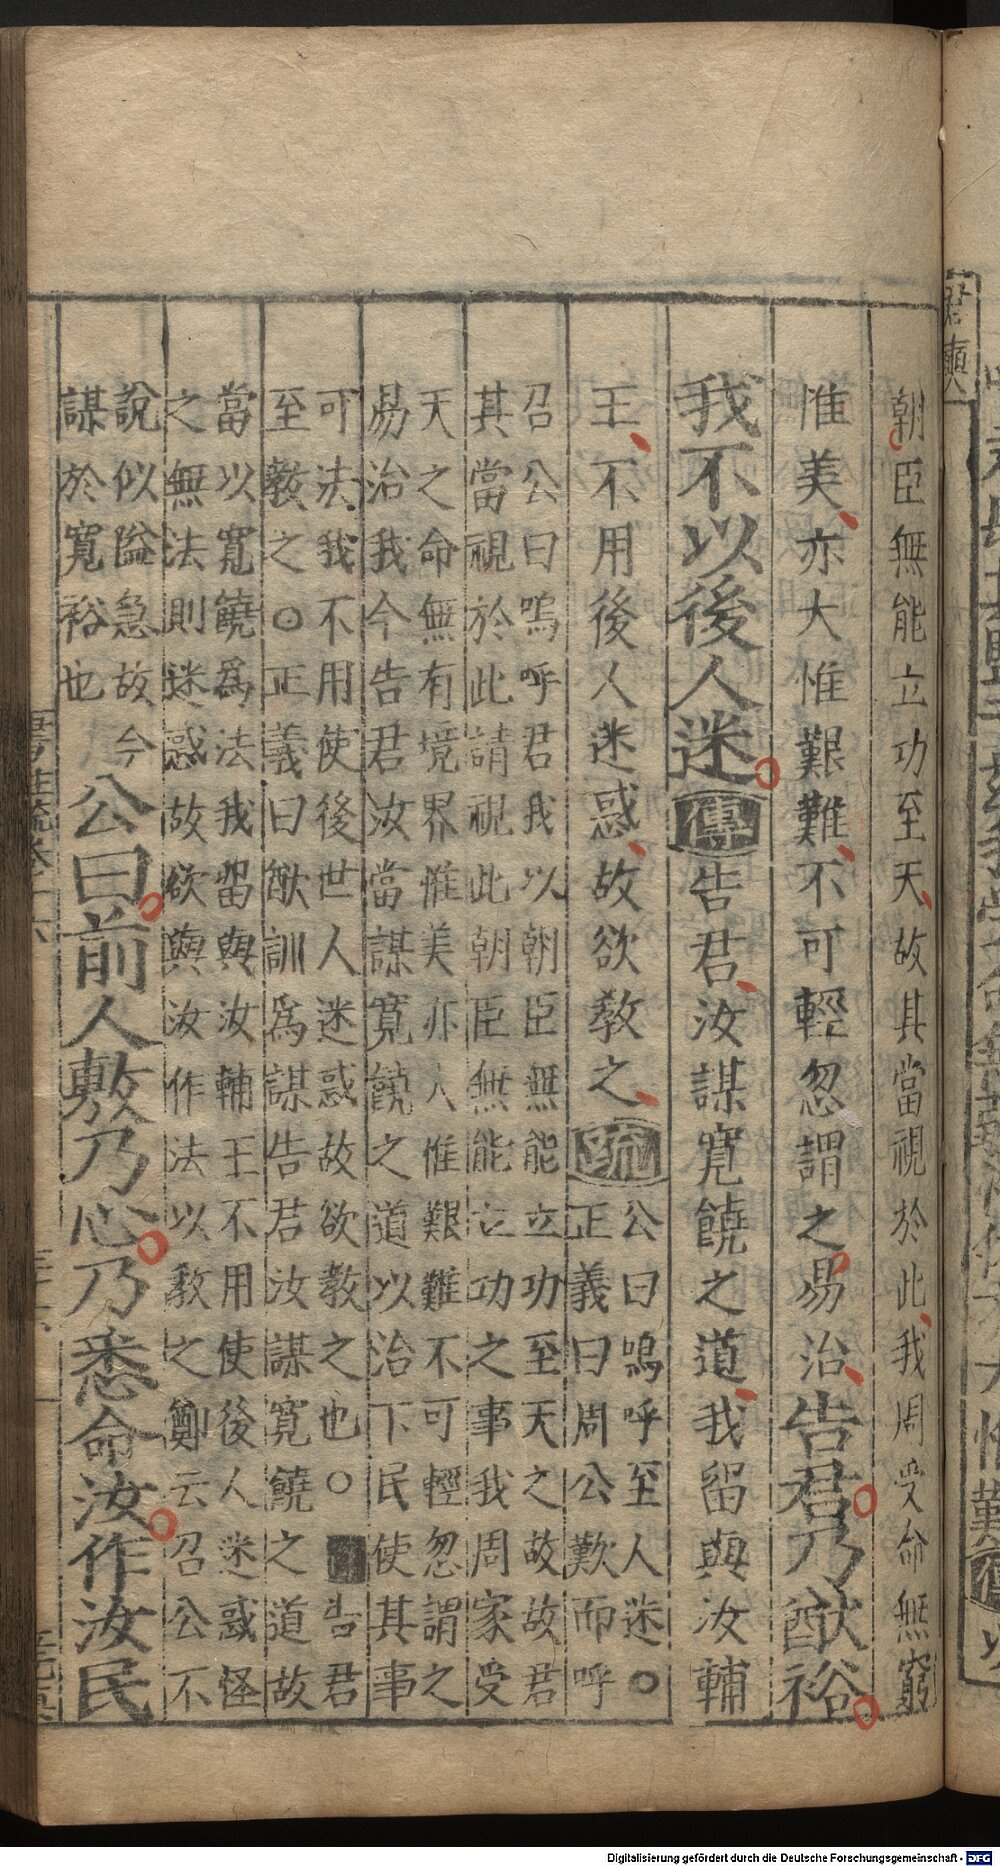 朝臣無能立功至天故其當視於此我周受命無窮
惟美亦大惟艱難不可輕忽謂之易治告君乃猷裕
我不以後人迷傳告君汝謀寬饒之道我留與汝輔
王不用後人迷惑故欲教之疏
公曰嗚呼至人迷○
正義曰周公歎而呼
召公曰嗚呼君我以朝臣無能立功至天之故故君
其當視於此請視此朝臣無能立功之事我周家受
天之命無有境界惟美亦人惟艱難不可輕忽謂之
易治我今告君汝當謀寬饒之道以治下民使其事
可法我不用使後世人迷惑故欲教之也○告君
至教之○正義曰猷訓為謀告君汝謀寬饒之道故
當以寬饒為法我留與汝輔王不用使後人迷惑怪
之無法則迷惑故欲與汝作法以教之鄭云召公不
說似隘急故今
謀於寬裕也
公曰前人敷乃心乃悉命汝作汝民
君奭
Digitalisierung gefördert durch die Deutsche Forschungsgemeinschaft - DFG